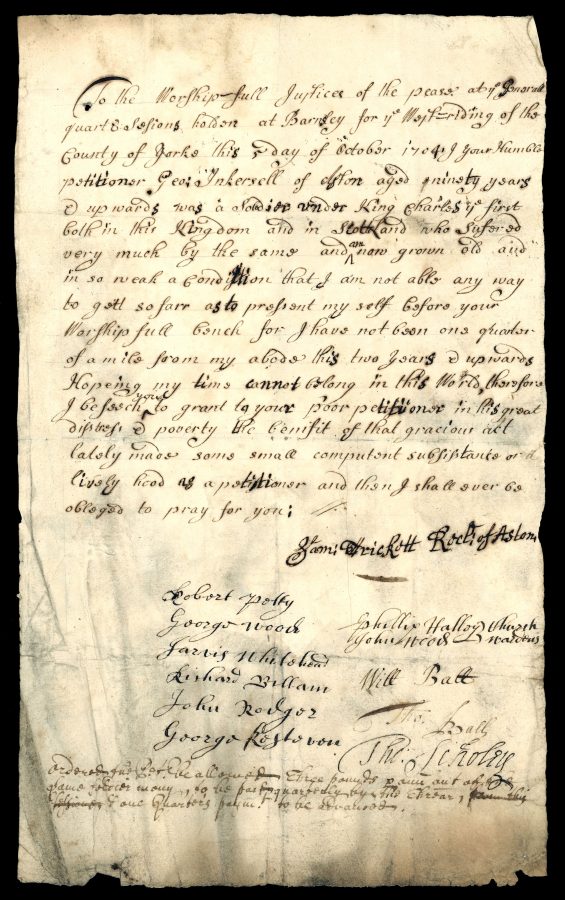 To the Worship-full Justices of the pease at ye Generall
quartr sesions holden at Barnsley for ye West-riding of the
County of Yorke this day of October 1704 I your Humble
petitioner Geo: Inkersell of Aston aged ninety years
& upwards was a Soldier under King Charles ye first
both in this Kingdom and in Scottland who sufered
very much by the same and am now grown old and
in so weak a Condition that I am not able any way
to gett so farr as to pressent my self before your
Worship full bench for I have not been one quarter
of a mile from my abode this two years & upwards
Hopeing my time cannot belong in this World therefore
I beseech you to grant to your poor petitioner in this great
distress & poverty the benifit of that gracious act
lately made some small computent subsistance or a
lively hood as a petitioner and then I shall ever be
obleged to pray for you:
Sam: Trickett Rectr of Aston
Robert Petty
George Wood
Phillix Halley Church
John Wood wardens
Jarvis Whitehead
Richard Billam
Will Batt
John Rodger
Tho Ball
George Kesteven
Tho: Scholey
ordered that Pet. be allowed three pounds p ann out of
lame soldier mony, to be paid quarterly by the Trear,
& one Quarters paymt to be advanced.